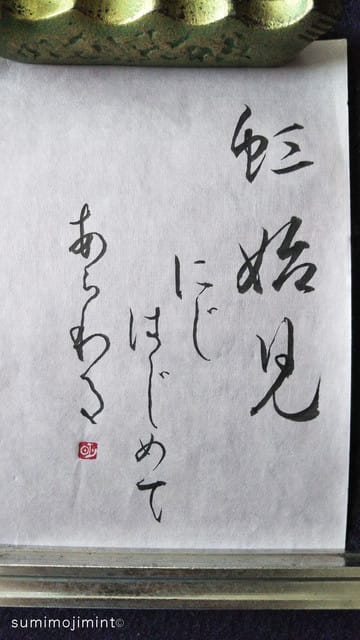 虹始見
にじ
はじめて
あらわる
sumimojimint©